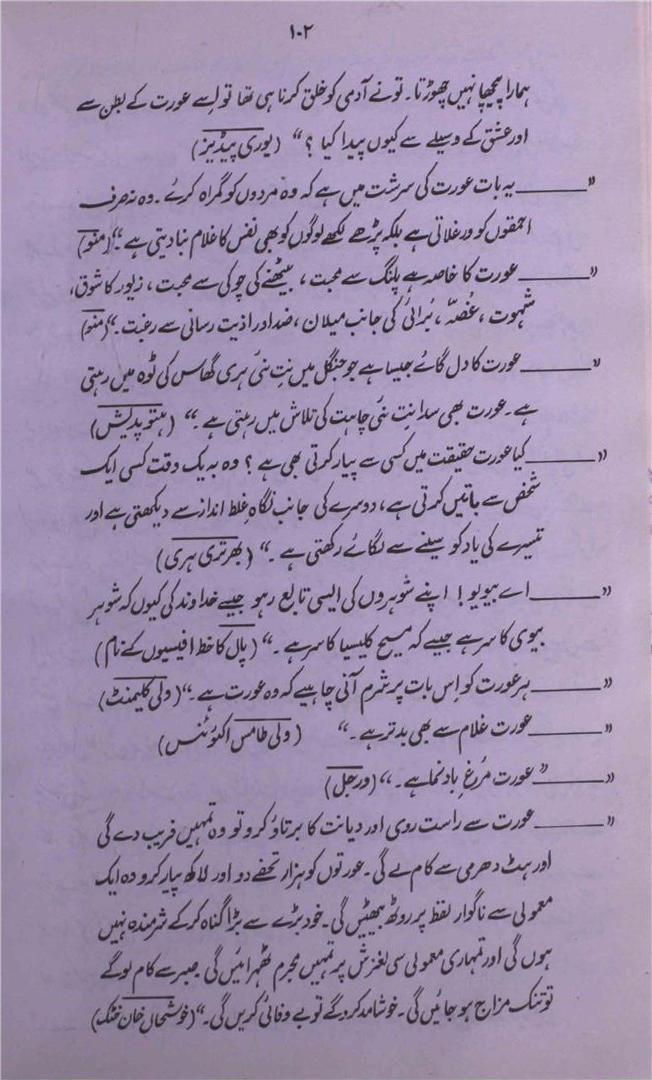 ۱۰۲
ہمارا پیچھا نہیں چھوڑتا۔ تو نے آدمی کو خلق کرنا ہی تھا تو اسے عورت کے بطن سے
اور عشق کے وسیلے سے کیوں پیدا کیا ؟“ (یوری پیڈیز)
”——— یہ بات عورت کی سرشت میں ہے کہ وہ مردوں کو گمراہ کرے۔ وہ نہ صرف
احمقوں کو ورغلاتی ہے بلکہ پڑھے لکھے لوگوں کو بھی نفس کا غلام بنا دیتی ہے۔“ (منو)
”——— عورت کا خاصہ ہے پلنگ سے محبت ، بیٹھنے کی چوکی سے محبت ، زیور کا شوق،
شہوت ، غصّہ ، بُرائی کی جانب میلان ، ضد اور اذیت رسانی سے رغبت۔“ (منو)
”——— عورت کا دل گائے جیسا ہے جو جنگل میں نِت نئی ہری گھاس کی ٹوہ میں رہتی
ہے۔ عورت بھی سدا نِت نئی چاہت کی تلاش میں رہتی ہے۔“ (ہتوپدیش)
”——— کیا عورت حقیقت میں کسی سے پیار کرتی بھی ہے ؟ وہ بہ یک وقت کسی ایک
شخص سے باتیں کرتی ہے، دوسرے کی جانب نگاہِ غلط انداز سے دیکھتی ہے اور
تیسرے کی یاد کو سینے سے لگائے رکھتی ہے۔“ (بھرتری ہری)
”——— اے بیویو ! اپنے شوہروں کی ایسی تابع رہو جیسے خداوند کی کیوں کہ شوہر
بیوی کا سر ہے جیسے کہ مسیح کلیسیا کا سر ہے۔“ (پال کا خط افیسیوں کے نام)
”——— ہر عورت کو اِس بات پر شرم آنی چاہیے کہ وہ عورت ہے۔“ (ولی کلیمنٹ)
”——— عورت غلام سے بھی بدتر ہے۔“ (ولی طامس اکوئنس)
”——— ”عورت مرُغِ بادنما ہے۔“ (ورجل)
”——— عورت سے راست روی اور دیانت کا برتاؤ کرو تو وہ تمہیں فریب دے گی
اور ہٹ دھرمی سے کام لے گی۔ عورتوں کو ہزار تحفے دو اور لاکھ پیار کرو وہ ایک
معمولی سے ناگوار لفظ پر روٹھ بیٹھیں گی۔ خود بڑے سے بڑا گناہ کر کے شرمندہ نہیں
ہوں گی اور تمہاری معمولی سی لغزش پر تمہیں مجرم ٹھہرائیں گی۔ صبر سے کام لو گے
تو تنک مزاج ہو جائیں گی۔ خوشامد کرو گے تو بے وفائی کریں گی۔“ (خوشحال خان خٹک)